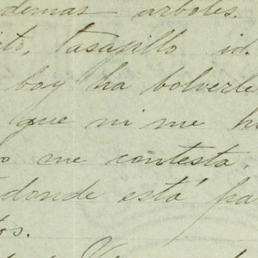 demas arboles.
ito, tasajillo id.
boy ha bolverle
que ni me h
o me contesta,
donde está pa
tos.